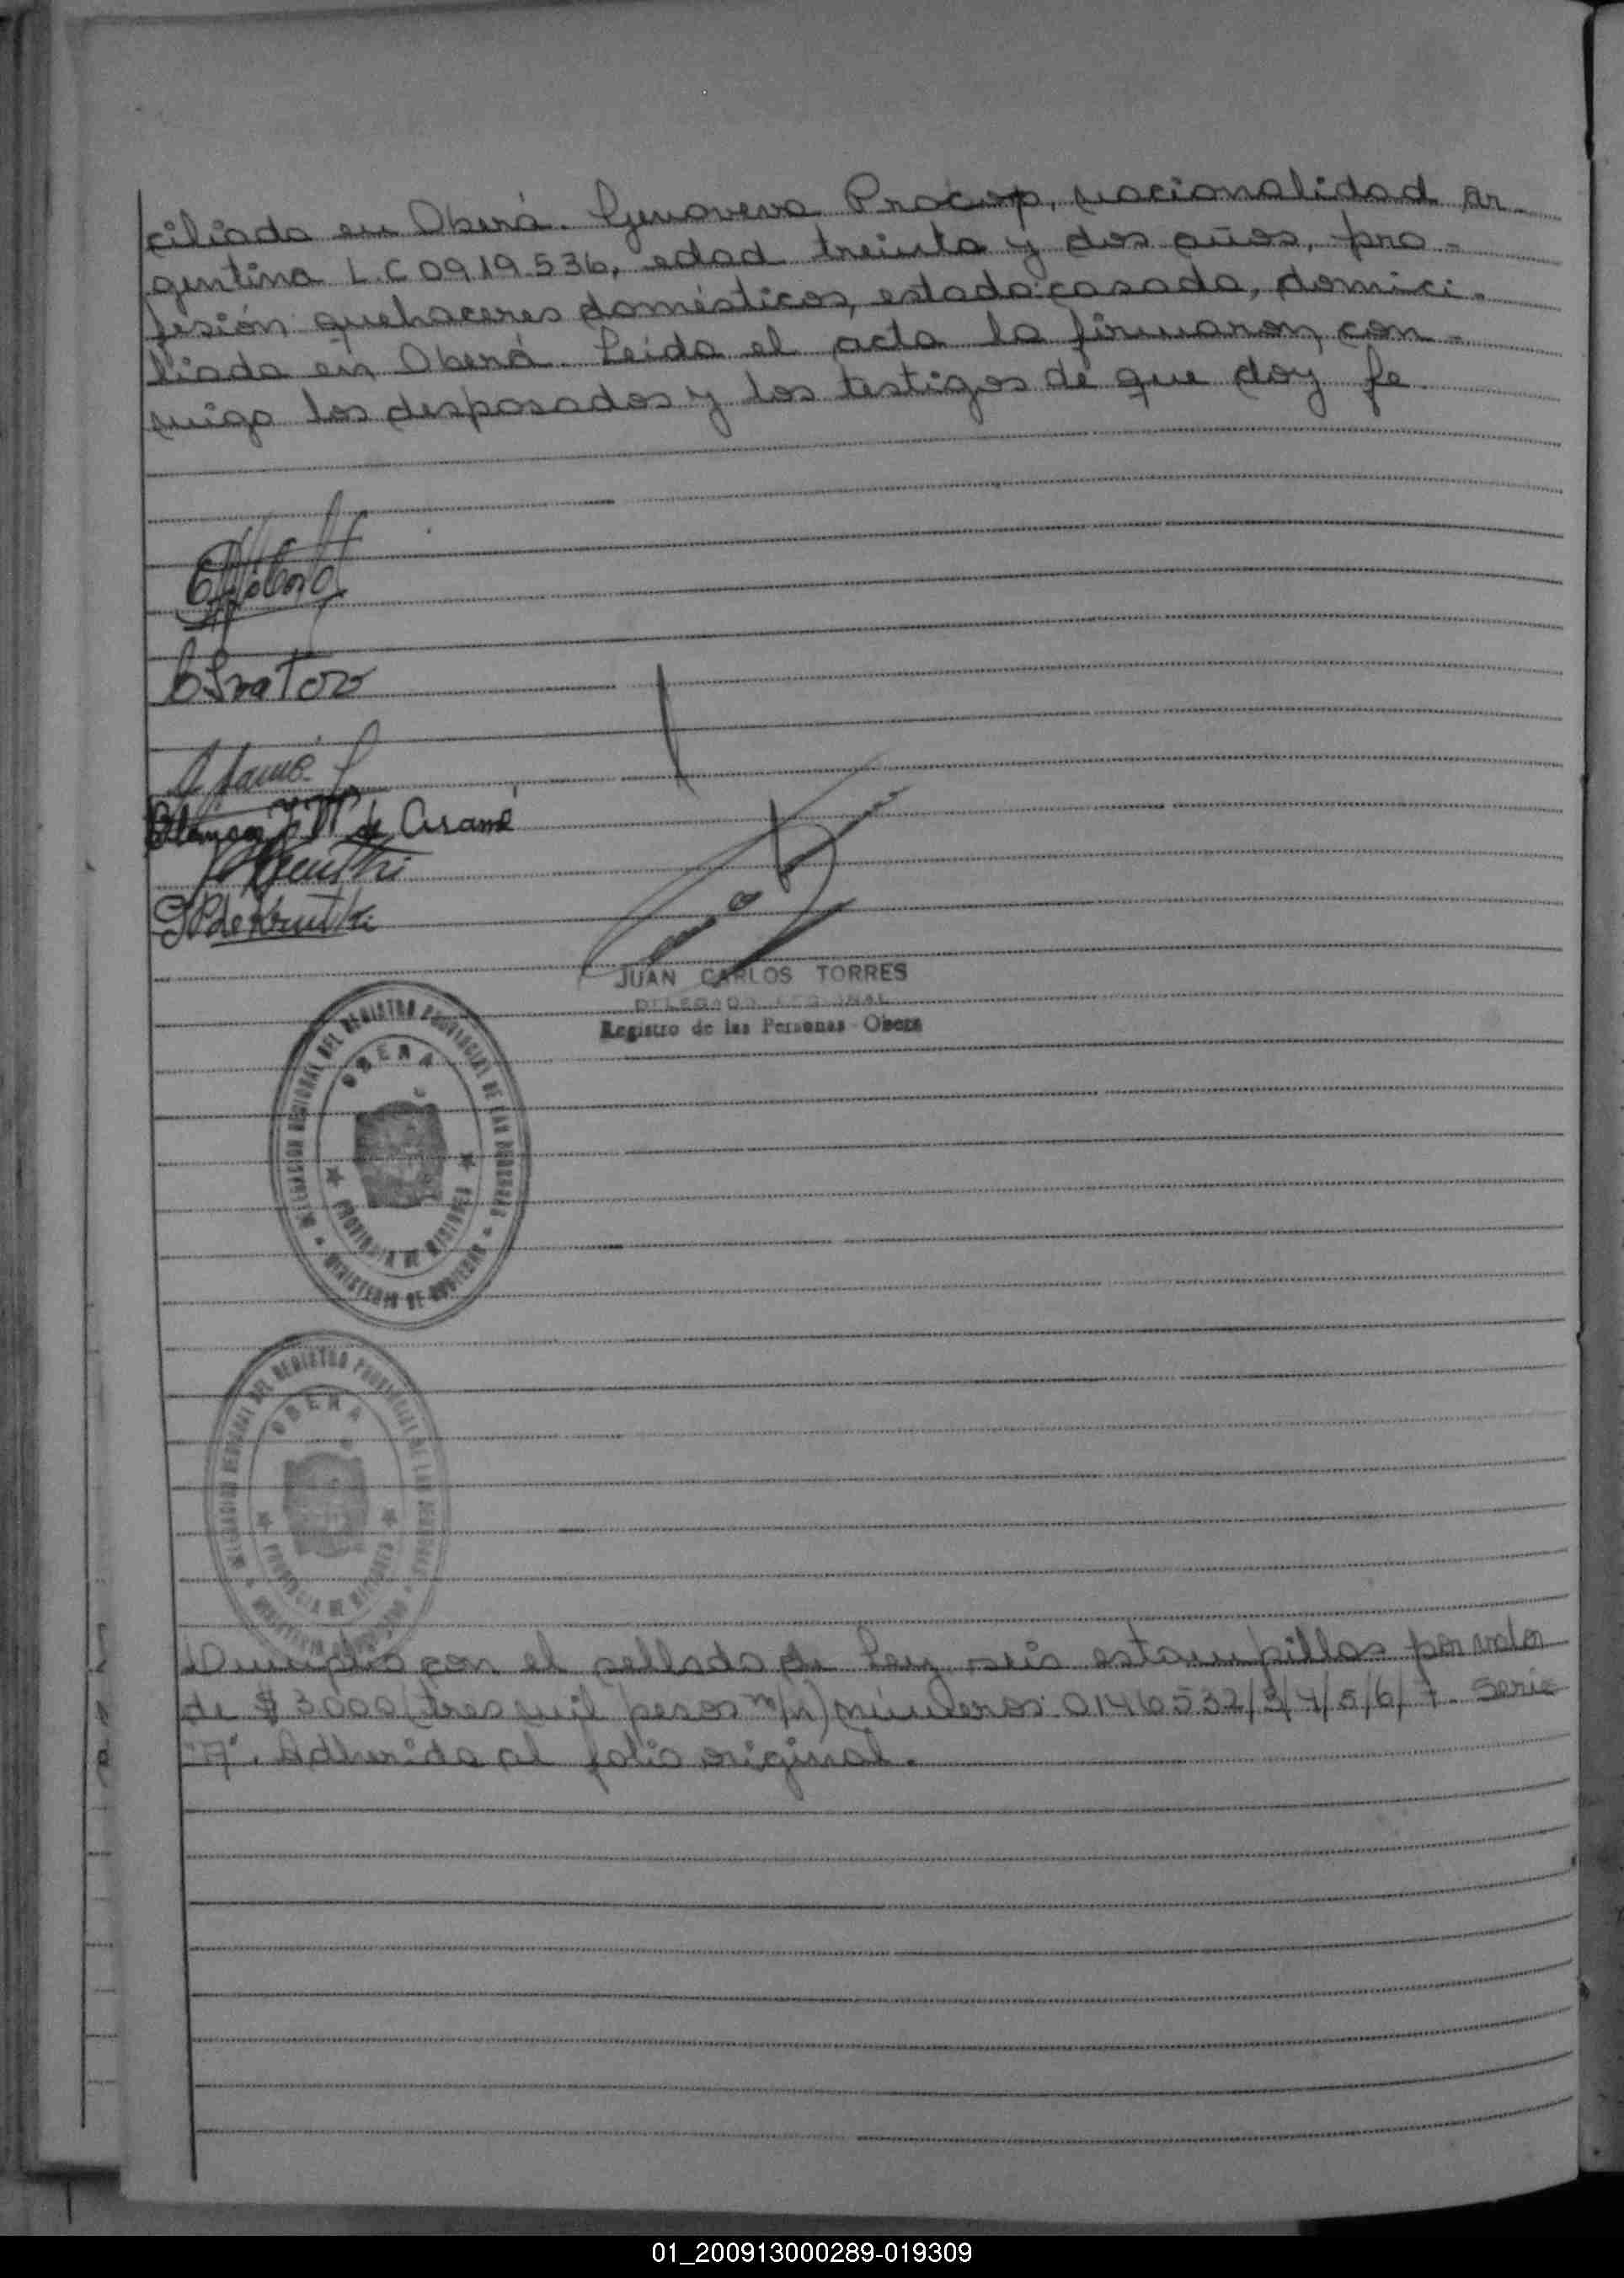 ciliada en Oberá. Genoveva Procop, nacionalidad ar-
gentina L.C 0919.536, edad treinta y dos años, pro-
fesión quehaceres domésticos, estado: casada, domici-
liada en Oberá. Leída el acta la firmaron, con-
migo los desposados y los testigos de que doy fe.
de Aramé
JUAN CARLOS TORRES
DELEGADO REGIONAL
Registro de las Personas - Oberá
DELEGACION REGIONAL DEL REGISTRO PROVINCIAL DE LAS PERSONAS
OBERA
PROVINCIA DE MISIONES
MINISTERIO DE GOBIERNO
DELEGACION REGIONAL DEL REGISTRO PROVINCIAL DE LAS PERSONAS
OBERA
PROVINCIA DE MISIONES
MINISTERIO DE GOBIERNO
con el sellado de Ley seis estampillas por valor
de $ 3000 (tres mil pesos m/n) números: 0146532/3/4/5/6/7. Serie
"A". Adherida al folio original.
01_200913000289-019309